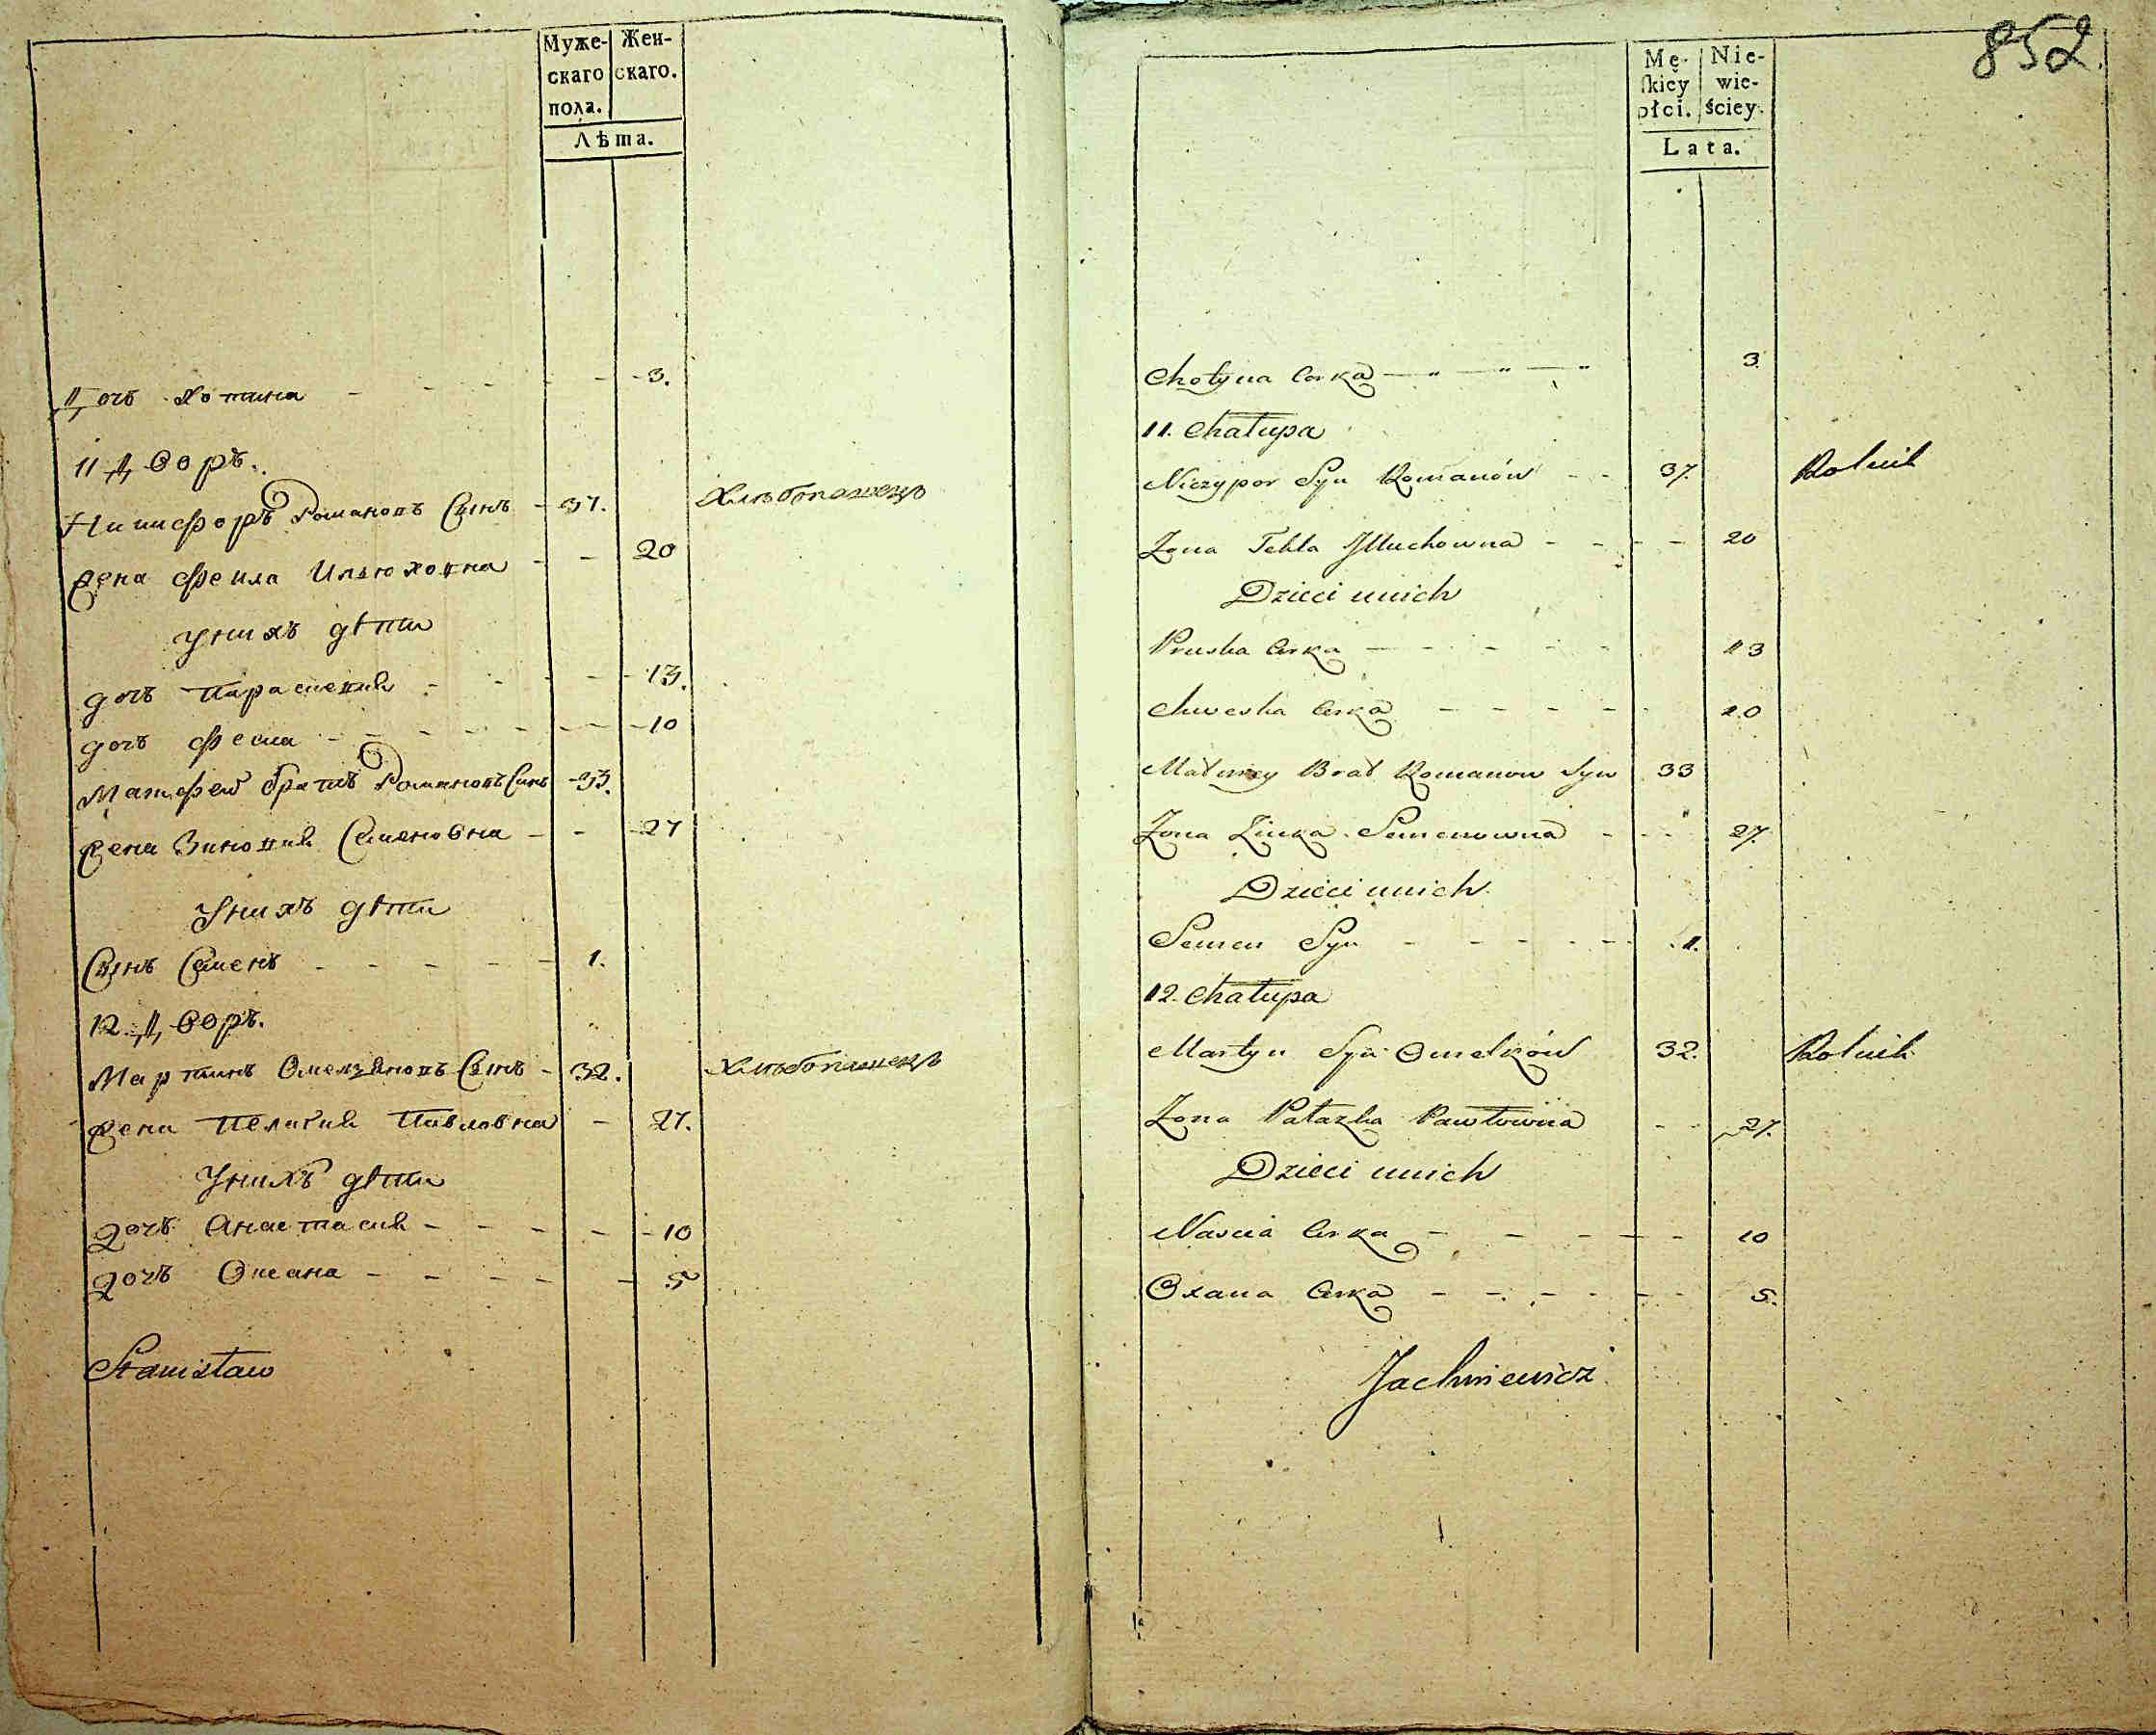 Муже- Жен-
скаго скаго.
пола.
Лѣта.
Дочь Хотина - - - - - - 3.
11 Дворъ.
Никифоръ Романовъ Сынъ - 37. Хлѣбопашецъ
Жена Фекла Ильюховна - - 20
У нихъ дѣти
дочь Параскевия - - - - - 13.
дочь Феска - - - - - - 10
Матфей братъ Романовъ Сынъ - 33.
Жена Зиновия Семеновна - - 27
У нихъ дѣти
Сынъ Семенъ - - - - - 1.
12. Дворъ.
Мартинъ Омельяновъ Сынъ - 32. Хлѣбопашецъ
Жена Пелагия Павловна - 27.
У нихъ дѣти
дочь Анастасия - - - - - 10
дочь Оксана - - - - - 5
Stanisław
852.
Mę- Nie-
skiey wie-
płci. ściey.
Lata.
Chotyna Corka — " — " — " 3
11. Chałupa
Niczypor Syn Romanów - - 37. Rolnik
Zona Tekla Illuchowna - - - - 20
Dzieci unich
Pruska Corka - - - - - 13
Chweska Corka - - - - - 10
Matwiey Brat Romanow Syn 33
Zona Zinka Semenowna - - - 27.
Dzieci unich
Semen Syn - - - - - 1.
12. Chałupa
Martyn Syn Omelków 32. Rolnik
Zona Pałazka Pawłowna - - 27.
Dzieci unich
Nascia Corka - - - - - 10
Oxana Corka - - - - - - 5.
Jachniewicz